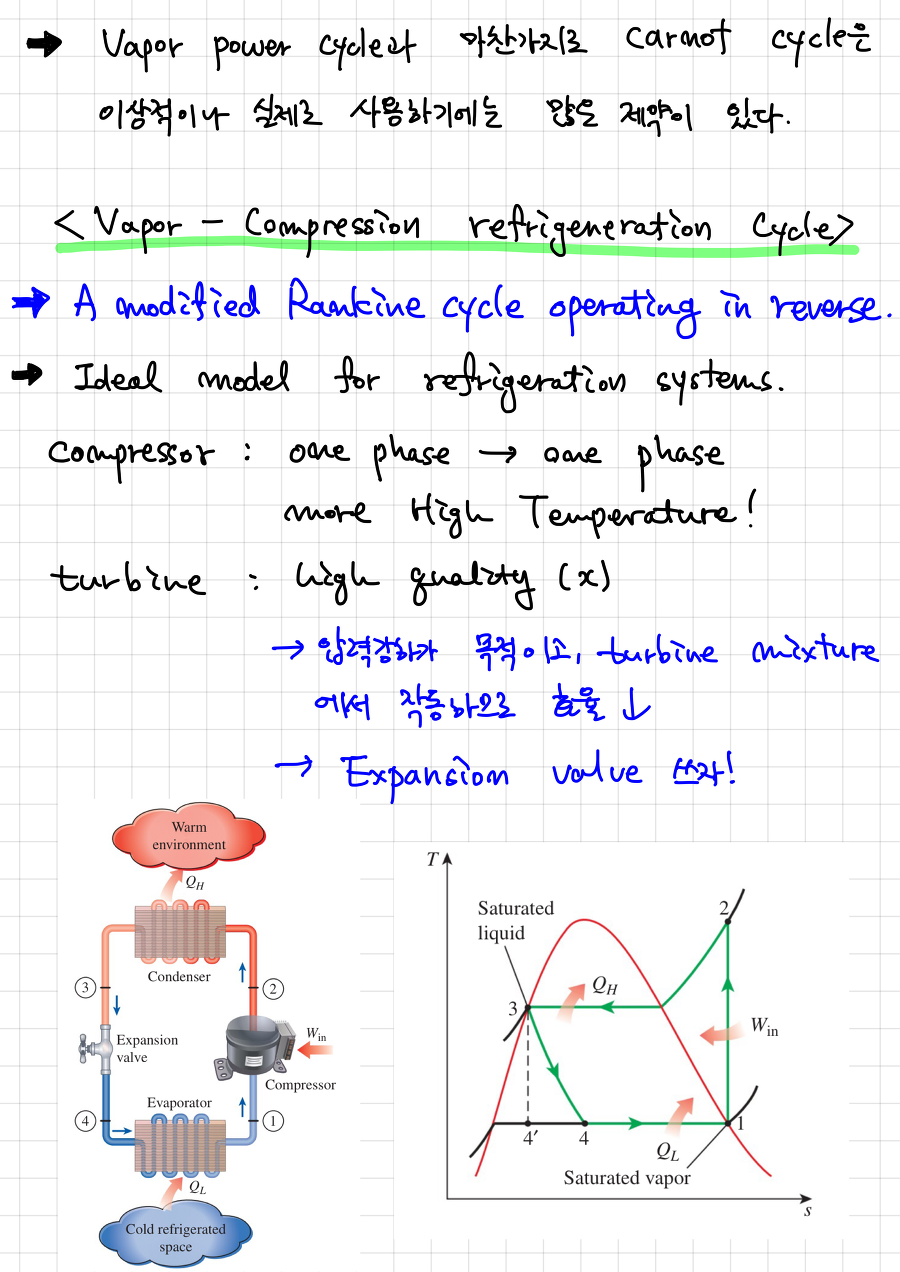 ➡ Vapor power cycle과 마찬가지로 carnot cycle은
이상적이나 실제로 사용하기에는 많은 제약이 있다.
< Vapor - Compression refrigeneration Cycle>
➡ A modified Rankine cycle operating in reverse.
➡ Ideal model for refrigeration systems.
compressor : one phase → one phase
more High Temperature!
turbine : high quality (x)
→ 압력강하가 목적이고, turbine mixture
에서 작동하므로 효율 ↓
→ Expansion valve 쓰자!
Warm
environment
Q_H
Condenser
3
2
Expansion
valve
W_in
Compressor
Evaporator
4
1
Q_L
Cold refrigerated
space
T
Saturated
liquid
2
3
Q_H
W_in
4′
4
1
Q_L
Saturated vapor
s